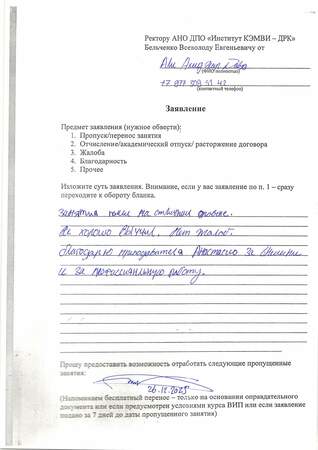 Ректору АНО ДПО «Институт КЭМВИ – ДРК»
Бельченко Всеволоду Евгеньевичу от
(ФИО полностью)
+7 977
(контактный телефон)
Заявление
Предмет заявления (нужное обвести):
1. Пропуск/перенос занятия
2. Отчисление/академический отпуск/ расторжение договора
3. Жалоба
4. Благодарность
5. Прочее
Изложите суть заявления. Внимание, если у вас заявление по п. 1 – сразу
переходите к обороту бланка.
Занятия на
хорошо Жалоб.
Благодарю преподавателя Анастасию за
и за профессиональную работу.
Прошу предоставить возможность отработать следующие пропущенные
занятия:
26.12.2025
(Напоминаем бесплатный перенос – только на основании оправдательного
документа или если предусмотрен условиями курса ВИП или если заявление
подано за 7 дней до даты пропущенного занятия)